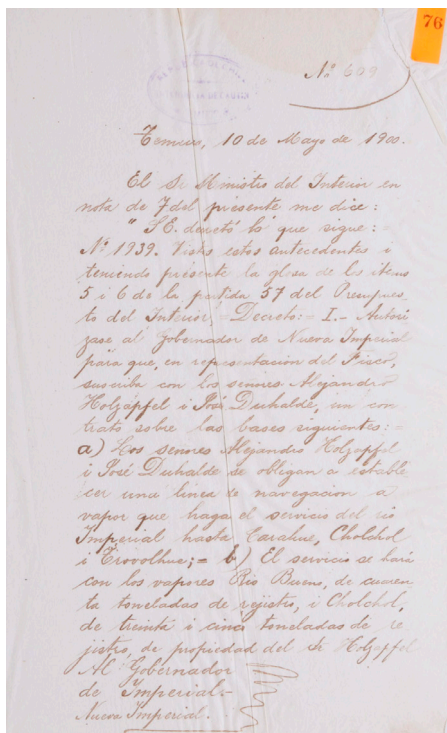 76
Nº 609
Temuco, 10 de Mayo de 1900.
El Sr Ministro del Interior en
nota de 7 del presente me dice:
"S.E. decretó lo que sigue:
Nº 1939. Vistos estos antecedentes i
teniendo presente la glosa de los items
5 i 6 de la partida 57 del Presupues-
to del Interior = Decreto: = I.- Autorí
zase al Gobernador de Nueva Imperial
para que, en representacion del Fisco,
suscriba con los señores Alejandro
Holzapfel i José Duhalde, un con
trato sobre las bases siguientes: =
a) Los señores Alejandro Holzapfel
i José Duhalde se obligan a estable
cer una linea de navegacion a
vapor que haga el servicio del rio
Imperial hasta Carahue, Cholchol
i Trovolhue; = b) El servicio se hará
con los vapores Rio Bueno, de cuaren
ta toneladas de rejistro, i Cholchol,
de treinta i cinco toneladas de re
jistro, de propiedad del Sr Holzapfel
Al Gobernador
de Imperial-
Nueva Imperial.